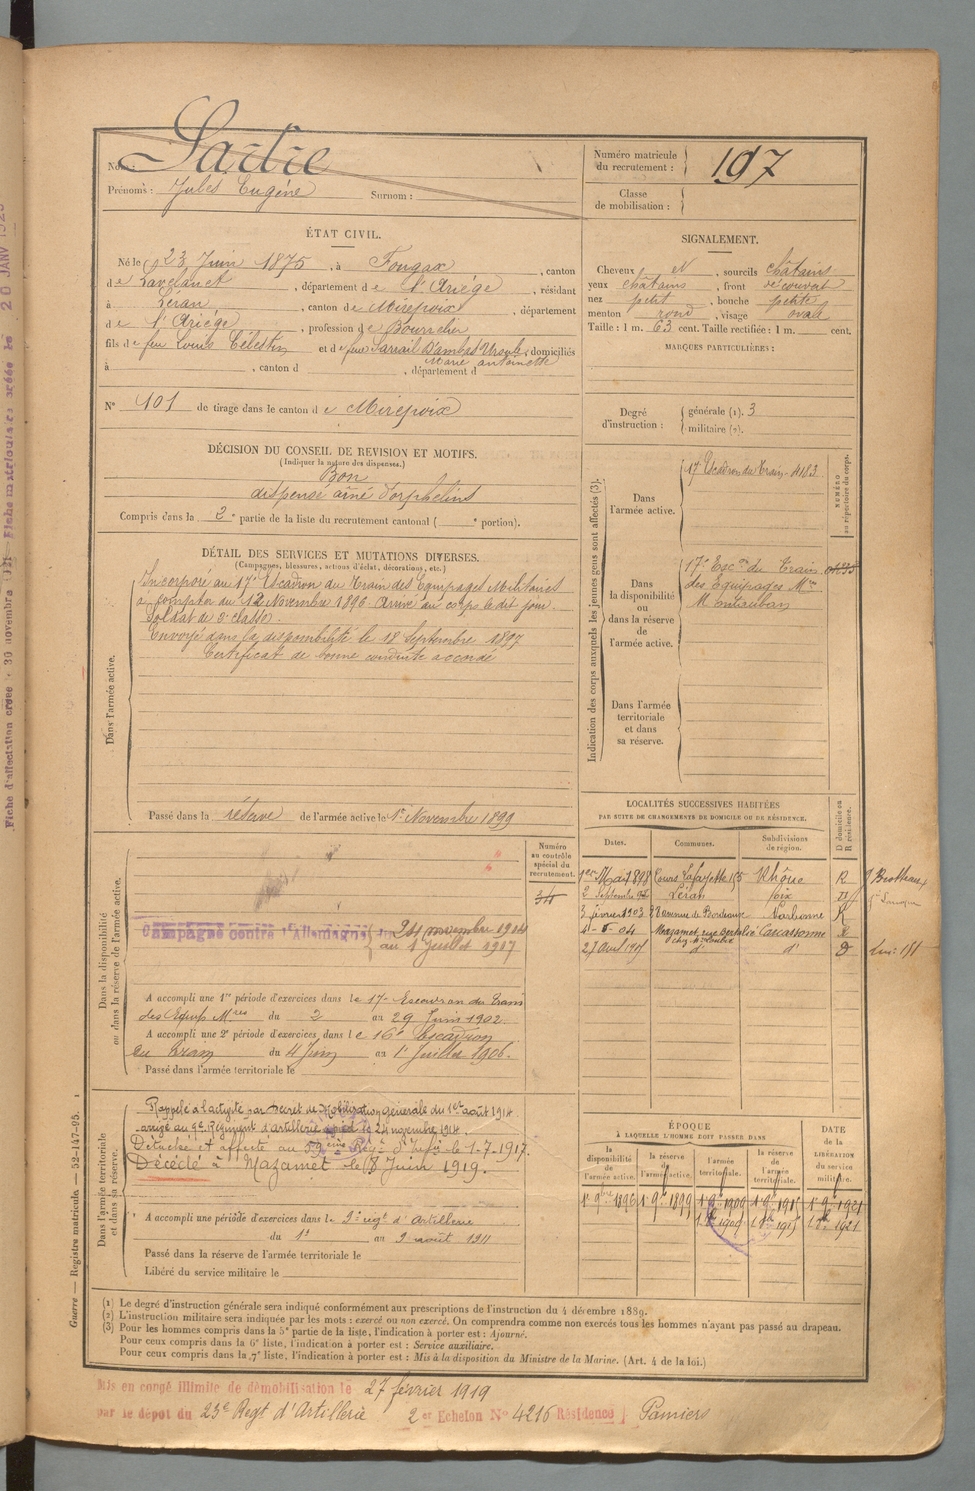 Nom :
Prénoms : Jules Eugène Surnom :
Numéro matricule du recrutement : 197
Classe de mobilisation :
ÉTAT CIVIL.
Né le 23 Juin 1875, à Fougax, canton
de Lavelanet, département de l'Ariège, résidant
à Léran, canton de Mirepoix, département
de l'Ariège, profession de Bourrelier
fils de feu Louis Célestin et de feue Sarrail Dambas Ursule, domiciliés
Marie antoinette
à , canton d , département d
N° 101 de tirage dans le canton de Mirepoix
SIGNALEMENT.
Cheveux et , sourcils châtains
yeux châtains , front découvert
nez petit , bouche petite
menton rond , visage ovale
Taille : 1 m. 63 cent. Taille rectifiée : 1 m. cent.
MARQUES PARTICULIÈRES :
Degré d'instruction : générale (1). 3
militaire (2).
DÉCISION DU CONSEIL DE REVISION ET MOTIFS.
(Indiquer la nature des dispenses.)
Bon
dispensé aîné d'orphelins
Compris dans la 2e partie de la liste du recrutement cantonal ( e portion).
DÉTAIL DES SERVICES ET MUTATIONS DIVERSES.
(Campagnes, blessures, actions d'éclat, décorations, etc.)
Dans l'armée active.
Incorporé au 17e Escadron du Train des Equipages Militaires
à compter du 12 Novembre 1896. Arrivé au corps le dit jour.
Soldat de 2e classe.
Envoyé dans la disponibilité le 18 Septembre 1897
Certificat de bonne conduite accordé
Passé dans la réserve de l'armée active le 1er Novembre 1899
Indication des corps auxquels les jeunes gens sont affectés (3).
NUMÉRO au répertoire du corps.
Dans l'armée active.
17e Escadron du Train - 4183
Dans la disponibilité ou dans la réserve de l'armée active.
17e Escon du Train
des Equipages Mres
Montauban
Dans l'armée territoriale et dans sa réserve.
LOCALITÉS SUCCESSIVES HABITÉES
PAR SUITE DE CHANGEMENTS DE DOMICILE OU DE RÉSIDENCE.
Dates. Communes. Subdivisions de région. D domicile ou R résidence.
1er Mai 1898 Cours Lafayette 155 Rhône R
2 Septembre Léran foix D
3 février 1903 28 avenue de Bordeaux Narbonne R
4 - 5 - 04 Mazamet, rue Carcassonne R
27 Avril 1905 d° d° D
Numéro au contrôle spécial du recrutement.
34
Dans la disponibilité ou dans la réserve de l'armée active.
Campagne contre l'Allemagne du 24 novembre 1914
au 1 Juillet 1917
A accompli une 1re période d'exercices dans le 17e Escadron du Train
des Equip Mres du 2 au 29 Juin 1902.
A accompli une 2e période d'exercices dans le 16e Escadron
du Train du 4 Juin au 1er Juillet 1906.
Passé dans l'armée territoriale le
Dans l'armée territoriale et dans sa réserve.
Rappelé à l'activité par décret de Mobilisation générale du 1er août 1914
arrivé au 9e Régiment d'artillerie à pied le 24 novembre 1914.
Détaché et affecté au 59eme Regt d'Infie le 1-7-1917.
Décédé à Mazamet le 8 Juin 1919.
A accompli une période d'exercices dans le 9e régt d'Artillerie
du 1er au 9 août 1911
Passé dans la réserve de l'armée territoriale le
Libéré du service militaire le
ÉPOQUE
À LAQUELLE L'HOMME DOIT PASSER DANS
la disponibilité de l'armée active. la réserve de l'armée active. l'armée territoriale. la réserve de l'armée territoriale. DATE de la LIBÉRATION du service militaire.
1er 9bre 1896 1er 9bre 1899 1er 9bre 1909 1er 9bre 1915 1er 9bre 1921
1909 1915 1921
(1) Le degré d'instruction générale sera indiqué conformément aux prescriptions de l'instruction du 4 décembre 1889.
(2) L'instruction militaire sera indiquée par les mots : exercé ou non exercé. On comprendra comme non exercés tous les hommes n'ayant pas passé au drapeau.
(3) Pour les hommes compris dans la 5e partie de la liste, l'indication à porter est : Ajourné.
Pour ceux compris dans la 6e liste, l'indication à porter est : Service auxiliaire.
Pour ceux compris dans la 7e liste, l'indication à porter est : Mis à la disposition du Ministre de la Marine. (Art. 4 de la loi.)
Mis en congé illimité de démobilisation le 27 février 1919
par le dépôt du 23e Regt d'Artillerie 2er Echelon N° 4216 Résidence Pamiers
Guerre — Registre matricule. — 52-147-95. 1